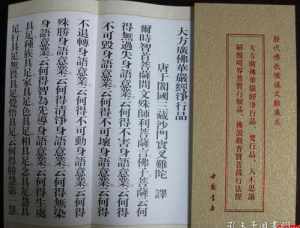 大方廣佛華嚴經淨行品、梵行品、入不思議
解脫境界普賢行願品、佛說觀普賢菩薩行法經
中國書店
大方廣佛華嚴經淨行品
唐于闐國三藏沙門實叉難陀 譯
爾時智首菩薩問文殊師利菩薩言佛子菩薩云何
得無過失身語意業云何得不害身語意業云何得
不可毀身語意業云何得不可壞身語意業云何得
不退轉身語意業云何得不可動身語意業云何得
殊勝身語意業云何得清淨身語意業云何得無染
身語意業云何得智為先導身語意業云何得生處
具足種族具足家具足色具足相具足念具足慧具
足行具足無畏具足覺悟具足云何得勝慧第一慧